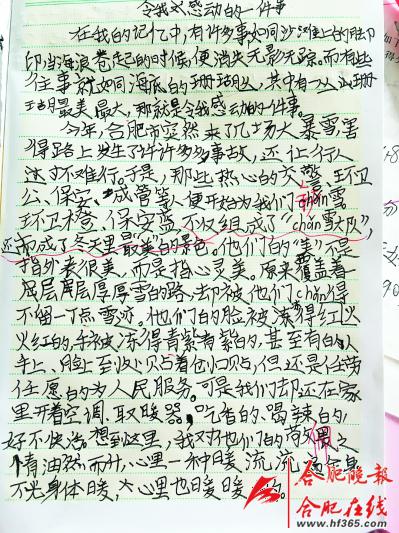 令我感动的一件事
在我的记忆中,有许多事如同沙滩上的脚
印,当海浪卷起的时候,便消失无影无踪。而有些
往事就如同海底的珊瑚丛,其中有一丛珊
瑚最美最大,那就是令我感动的一件事。
今年,合肥市突然来了几场大暴雪,害
得路上发生了件许多多事故,还让行人
寸步难行。于是,那些热心的交警、环卫
公、保安、城管等人便开始为我们雪
环卫橙、保安蓝,不仅组成了“chǎn雪大队”,
还而成了冬天里最美的景色。他们的“美”不是
指外表很美,而是指心灵美。原来覆盖着一
层层厚厚雪的路,却被他们chǎn得
不留一丁点雪迹。他们的脸被冻得红火
火红的,手被冻得青紫青紫的,甚至有的人
手上、脸上贴着创口贴,但还是任劳
任愿的为人民服务。可是我们却还在家
里开着空调、取暖器,吃香的、喝辣的,
好不快活。想到这里,我对他们的敬佩之
情油然而升,心里一种暖流流
不光身体暖,心里也暖暖的。
合肥晚报
合肥在线
www.hf365.com